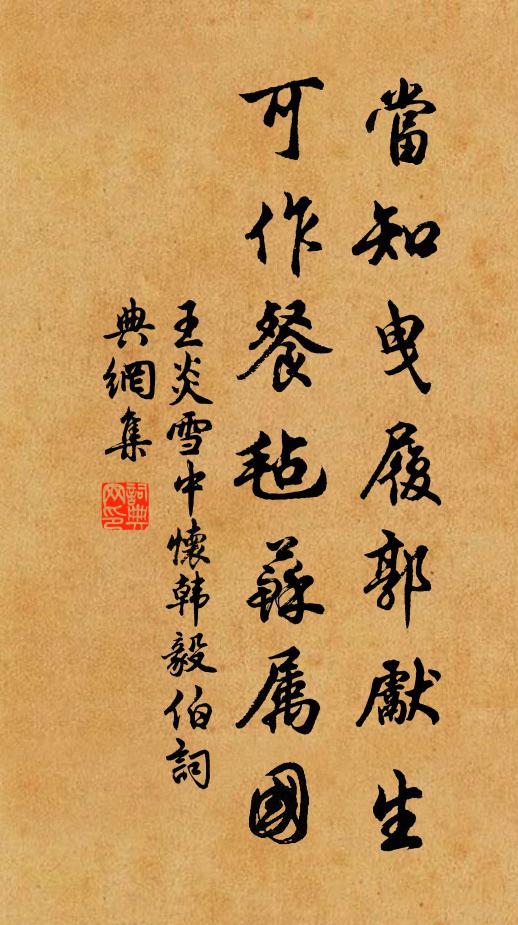 當知曳履郭獻生
可作餐毡蘇属國
王炎雪中懷韩毅伯詞
典網集
詞典网印